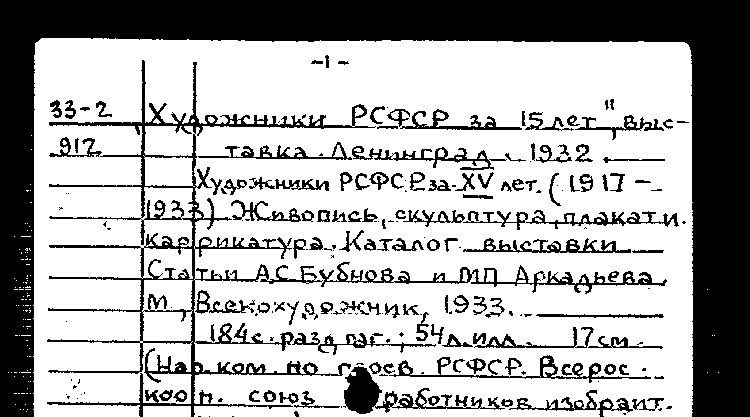 -1-
33-2 „Художники РСФСР за 15 лет", выс-
912 тавка. Ленинград. 1932.
Художники РСФСР за XV лет. (1917-
1933) Живопись, скульптура, плакат и
каррикатура. Каталог выставки
Статьи А.С Бубнова и МП Аркадьева.
М, Всекохудожник, 1933.
184с. разд. паг.; 54л.илл. 17см.
(Нар. ком. по просв. РСФСР. Всерос.
кооп. союз работников изобраит.